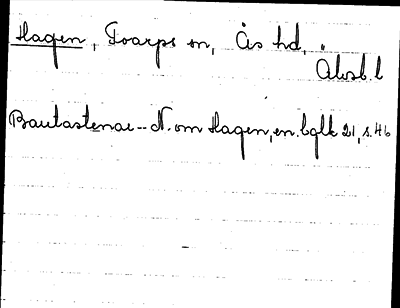 Hagen, Toarps sn, Ås hd,
Älvsb. l
Bautastenar -- N. om Hagen, en. bglk 21, s. 46